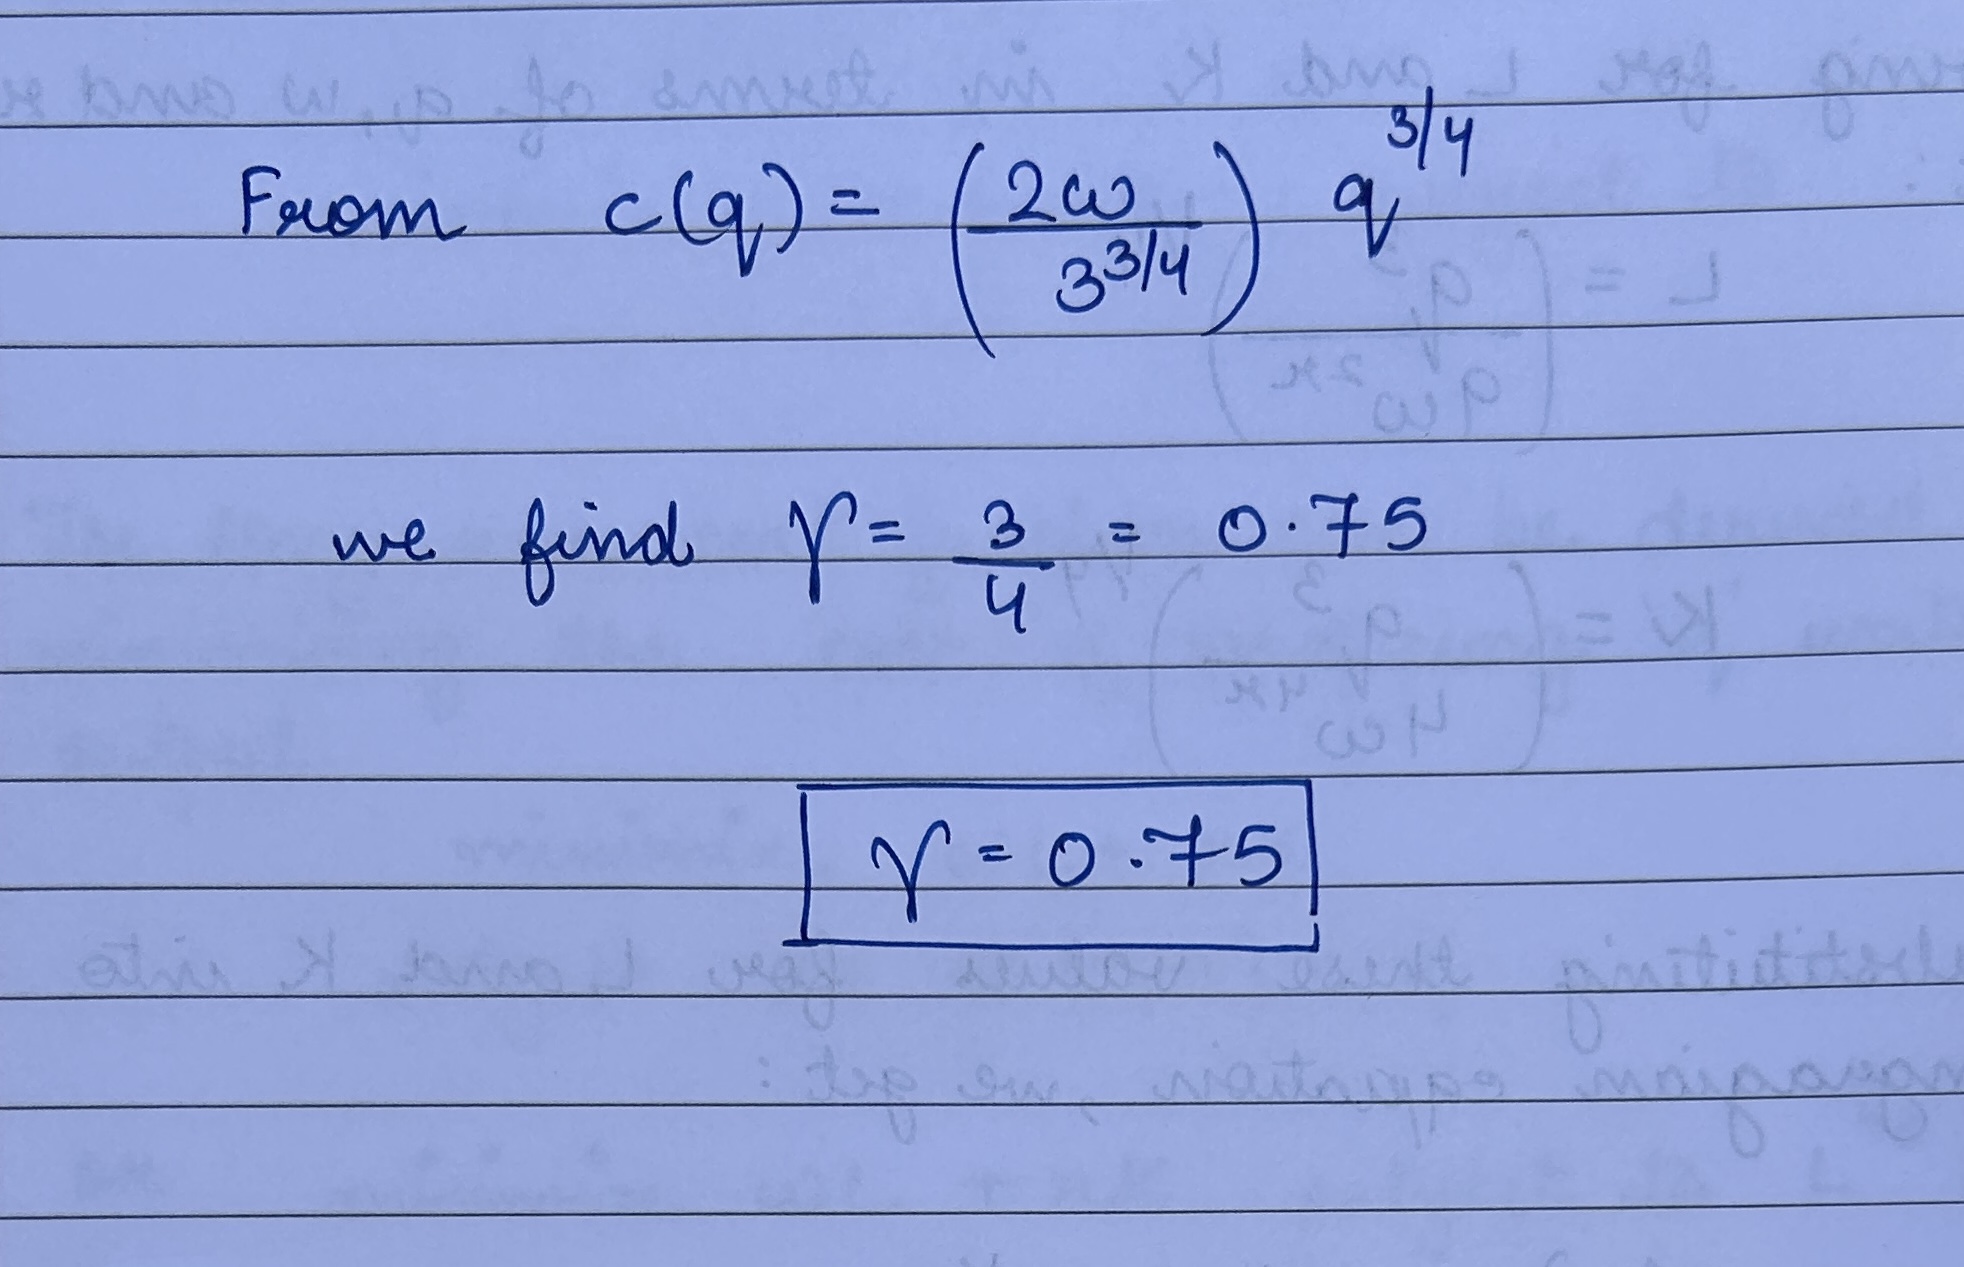 From c(q) = (2ω / 3^3/4) q^3/4
we find γ = 3/4 = 0.75
γ = 0.75